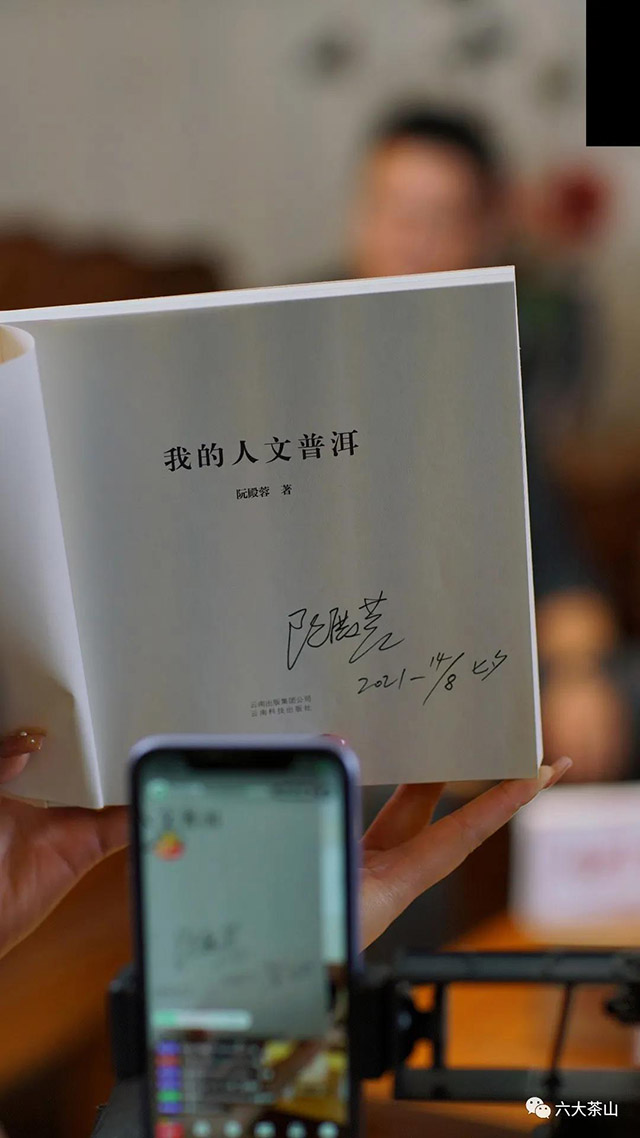 我的人文普洱
阮殿蓉 著
阮殿蓉
2021-14/8 七夕
云南出版集团公司
云南科技出版社
六大茶山